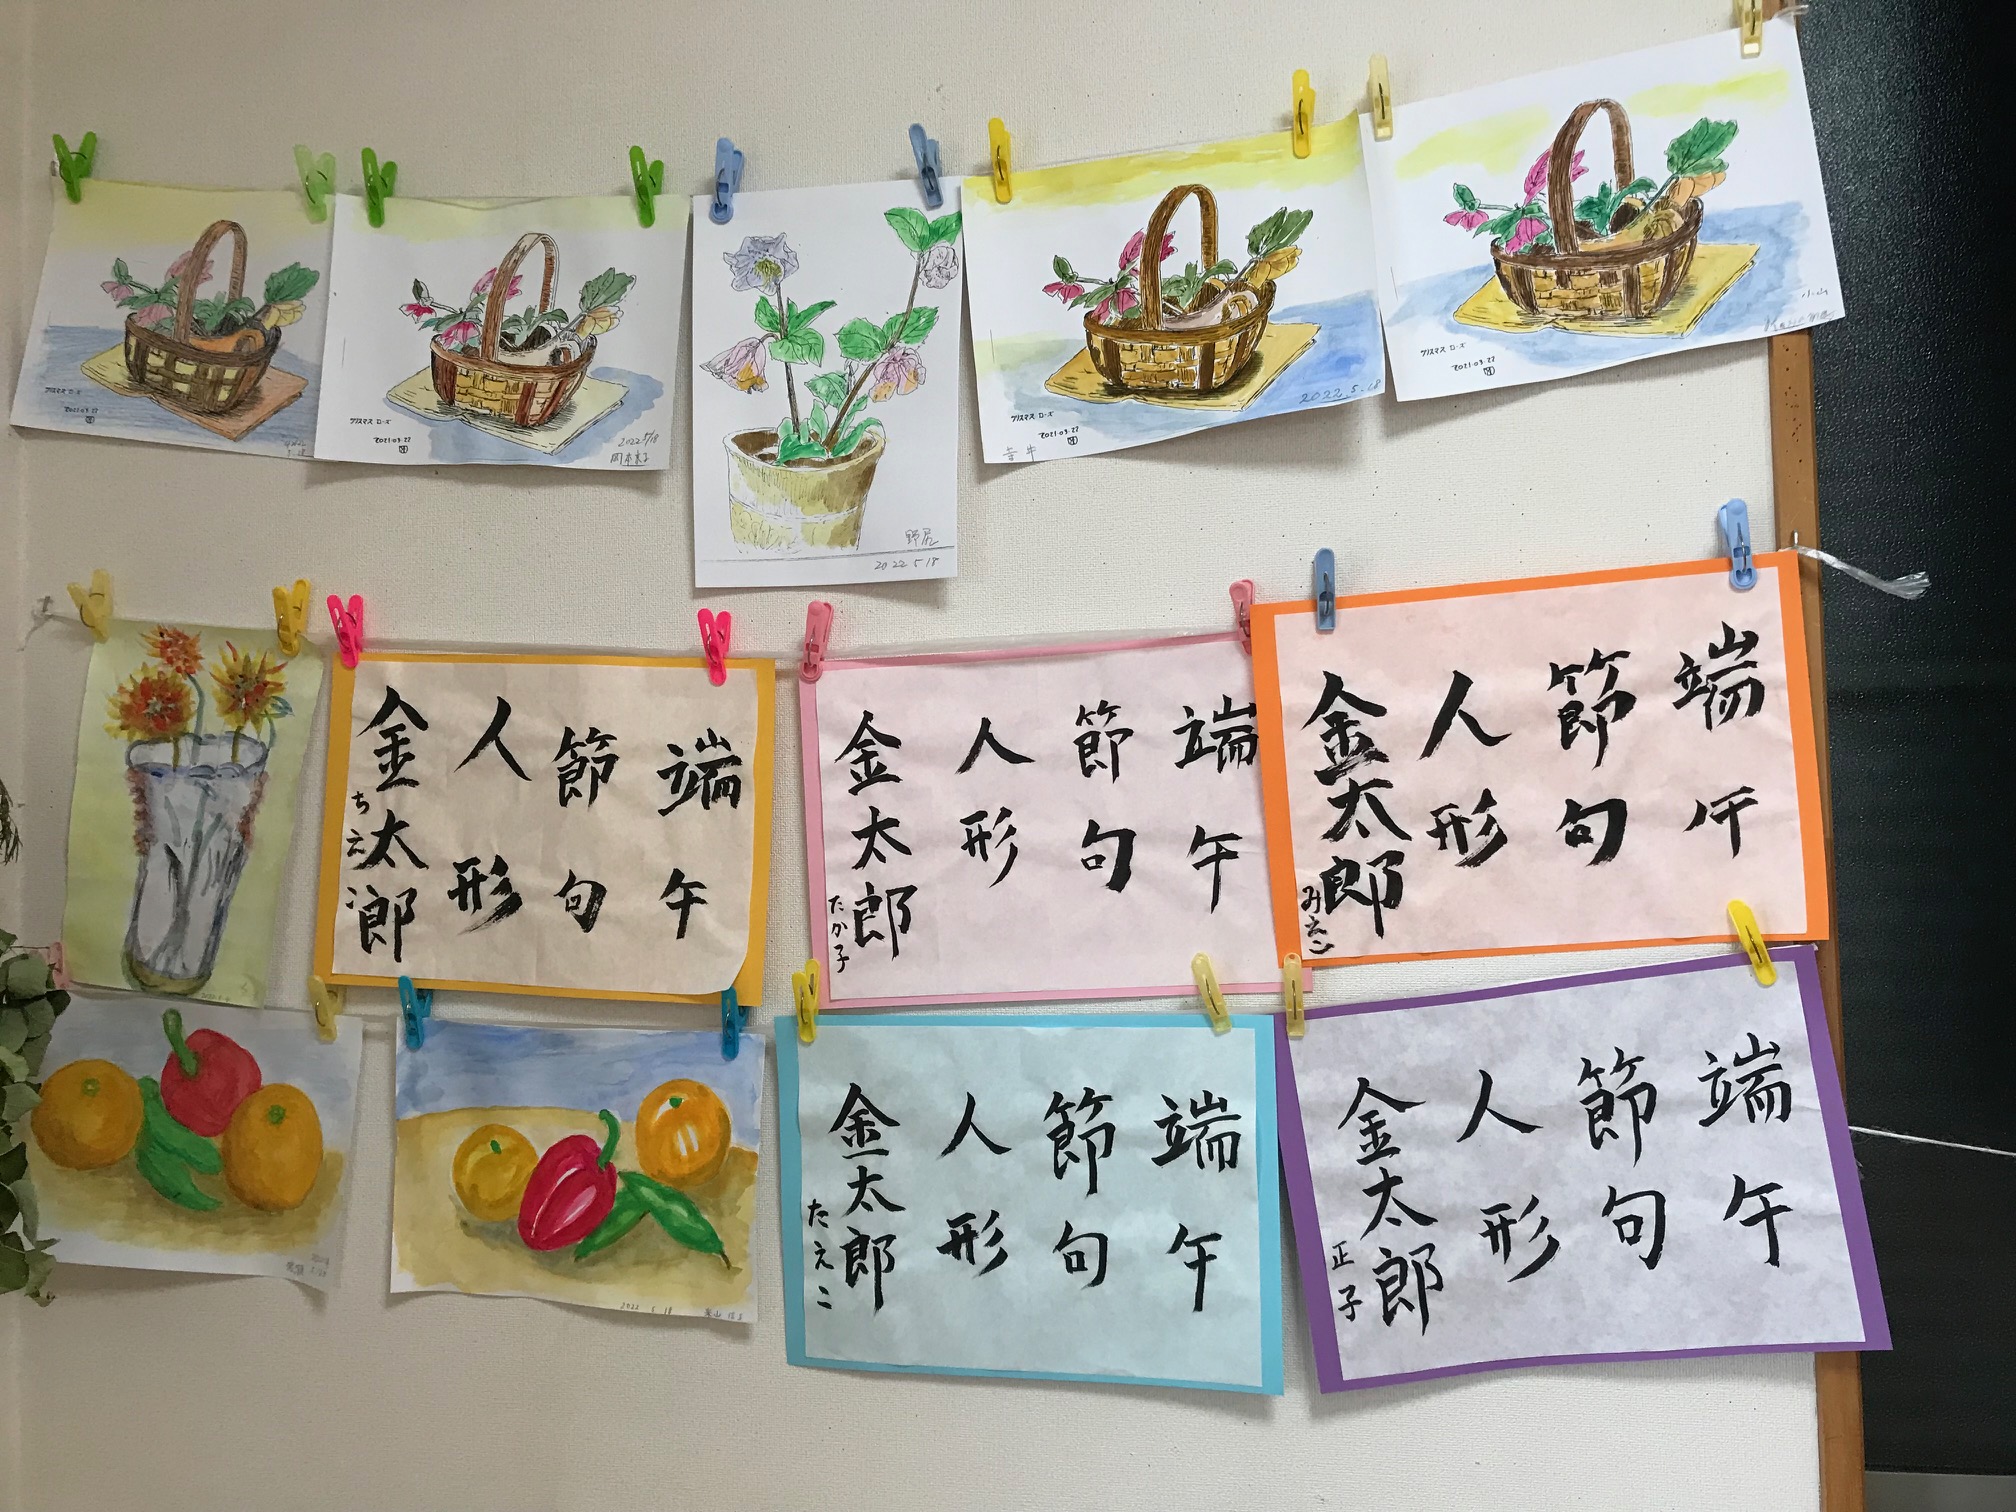 クリスマスローズ
2021.03.27
クリスマスローズ
2021.03.27
2022 5/18
岡本
野尻
2022 5 18
クリスマスローズ
2021.03.27
2022.5.18
クリスマスローズ
2021.03.27
小山
端午
節句
人形
金太郎
ちえ
端午
節句
人形
金太郎
たか子
端午
節句
人形
金太郎
みえこ
2022 5 18
端午
節句
人形
金太郎
たえこ
端午
節句
人形
金太郎
正子